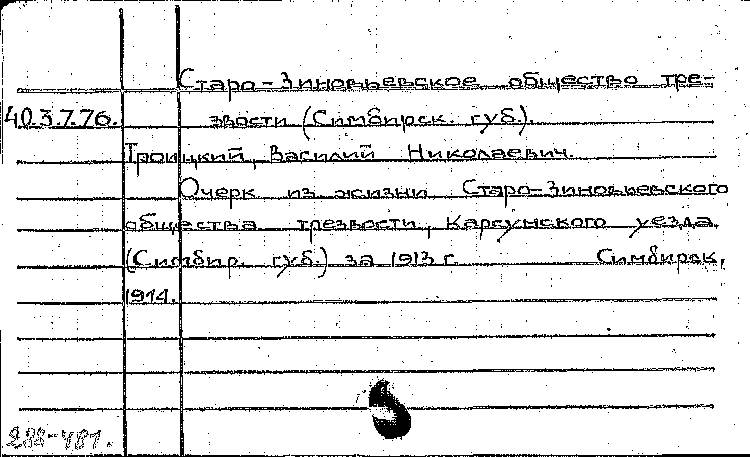 Старо-Зиновьевское общество тре-
40.3.7.76. звости (Симбирск. губ.).
Троицкий, Василий Николаевич.
Очерк из жизни Старо-Зиновьевского
общества трезвости, Карсунского уезда
(Симбир. губ.) за 1913 г. Симбирск,
1914.
288-481.